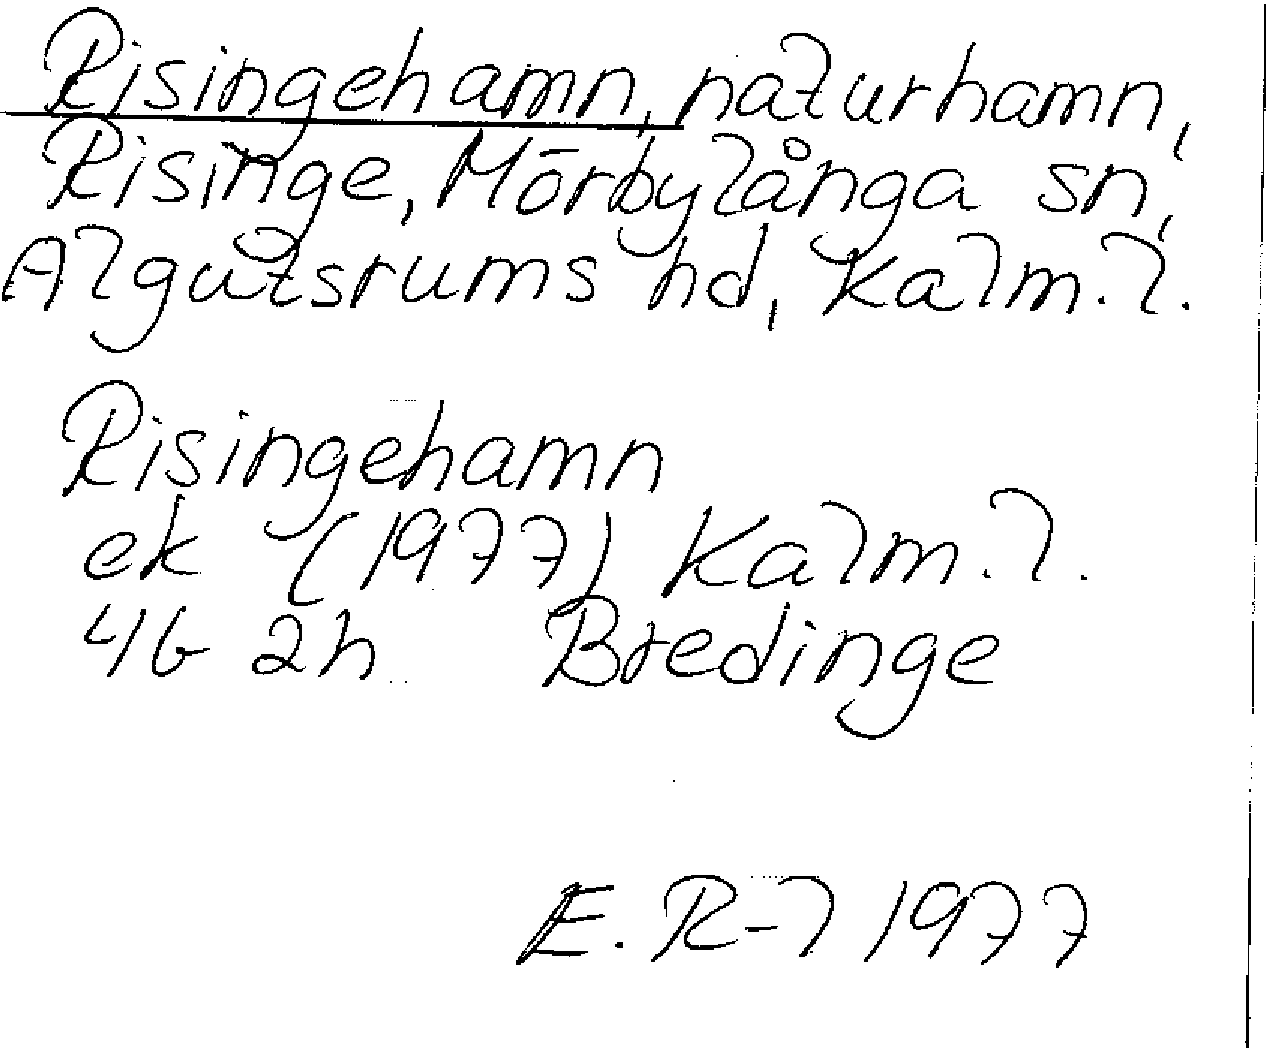 Risingehamn, naturhamn,
Risinge, Mörbylånga sn,
Algutsrums hd, Kalm. l.
Risingehamn
ek (1977) Kalm. l.
4G 2h Bredinge
E. R-l 1977